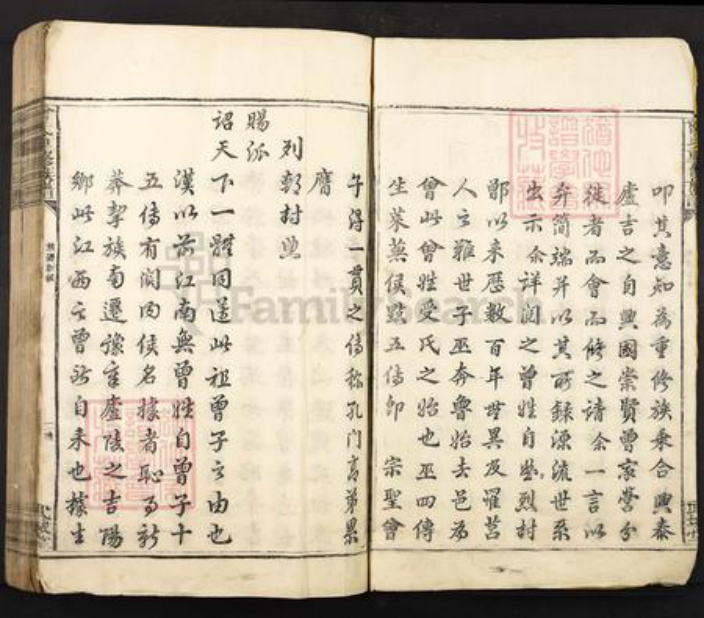 叩其意知為重修族乘合興泰
廬吉之自興國崇賢曹家營分
徙者而會而修之請余一言以
弁簡端并以其所録源流世系
出示余詳閲之曾姓自烈封
鄫以来歴数百年世異及滅莒
人之難世子巫奔魯始去邑為
曾此曾姓受氏之始也巫四傳
生菜蕪侯㸃五傳即 宗聖曾
子得一貫之傳称孔门高弟累
膺
列朝封典
賜派
詔天下一體同遵此祖曾子之由也
漢以前江南無曾姓自曾子十
五傳有関内侯名據者恥事新
莽挈族南遷豫章廬陵之吉陽
鄉此江西之曾所自来也據生
FamilySearch